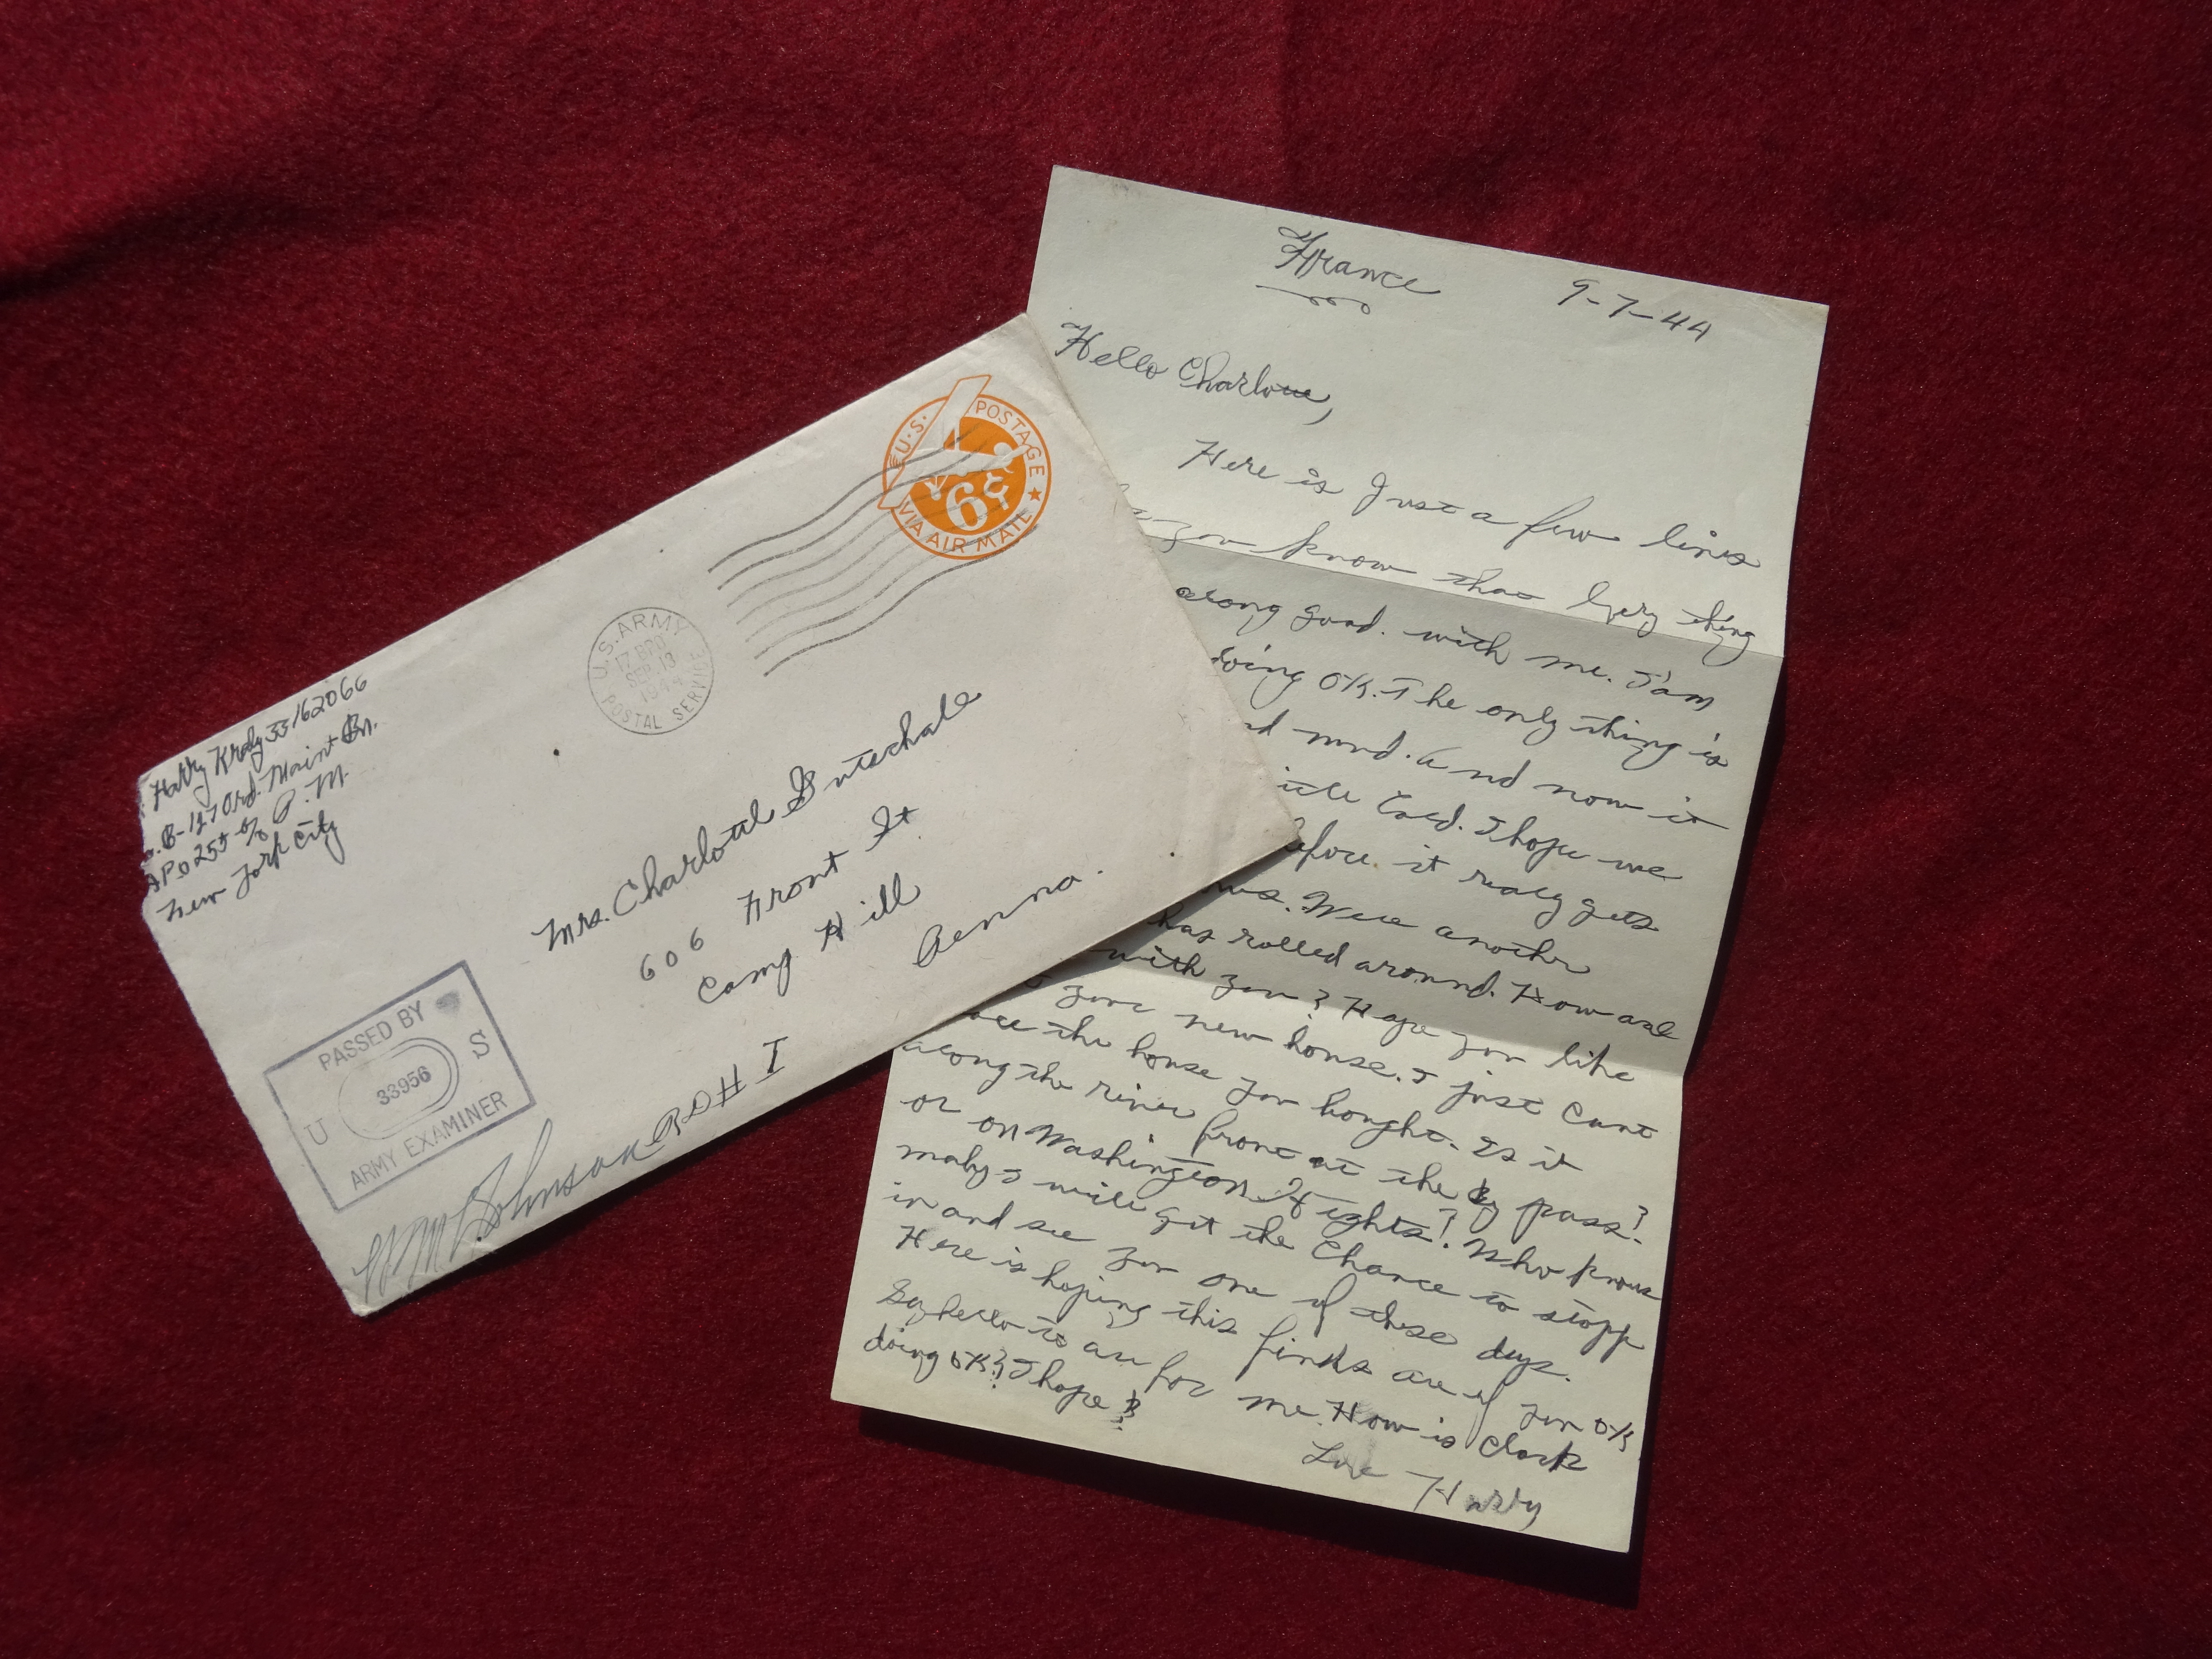 Harry Krody 33162066
B-127 Ord. Maint Bn.
APO 255 % P.M.
New York City
U.S. POSTAGE
6¢
VIA AIR MAIL
U.S. ARMY
17 BPO
SEP 13
1944
POSTAL SERVICE
Mrs. Charlottee
606 Front St
Camp Hill
Penna.
PASSED BY
U 33956 S
ARMY EXAMINER
Johnson
France 9-7-44
Hello Charlotte,
Here is Just a few lines
you know that Every thing
along good. with me. I'am
doing OK. The only thing is
mud. And now it
Cold. I hope we
before it realy gets
us. Well another
has rolled around. How are
with you? Hope you like
your new house. I just Cant
the house you bought. Is it
along the river front at the by pass?
or on Washington Heights? Who knows
maby I will get the Chance to stopp
in and see you one of these days.
Here is hoping this finds all of you OK
Say hello to all for me. How is Clark
doing OK? I hope?
Love Harry